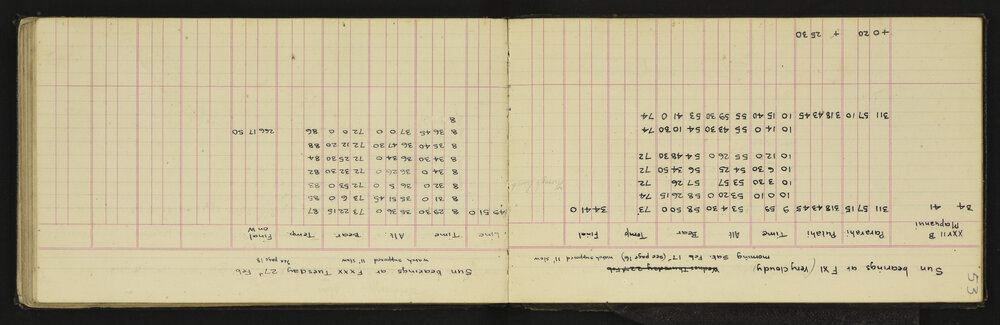 53
Sun bearings at F XI (very cloudy) Thursday 22 Feb
morning Sat. Feb 17, (see page 16) watch supposed 11 slow
XXVII B Mapuanui Pararahi Putahi Time Alt Bear Temp Final
34 41 311 57 15 318 43 45 9 59 53 4 30 58 50 0 73 34 41 0
10 0 10 53 20 0 58 26 15 74
10 3 30 53 57 57 26 72
10 6 30 54 25 56 34 50 72
10 12 0 55 26 0 54 48 30 72
10 14 0 55 48 30 54 10 30 74
311 57 10 318 43 45 10 15 40 55 59 30 53 41 0 74
+0 20 + 25 30
Sun bearings at F XXX Tuesday 27th Feb
watch supposed 11 slow see page 15
Line Time Alt. Bear Temp Final on W
51 0 8 29 30 35 36 0 73 22 15 87
8 31 0 35 51 45 73 6 0 85
8 32 0 36 5 0 72 53 0 83
8 34 0 36 26 0 72 32 30 82
8 34 30 36 34 0 72 25 30 84
8 35 40 36 47 30 72 12 20 88
8 36 45 37 0 0 72 0 0 86 266 17 50
8